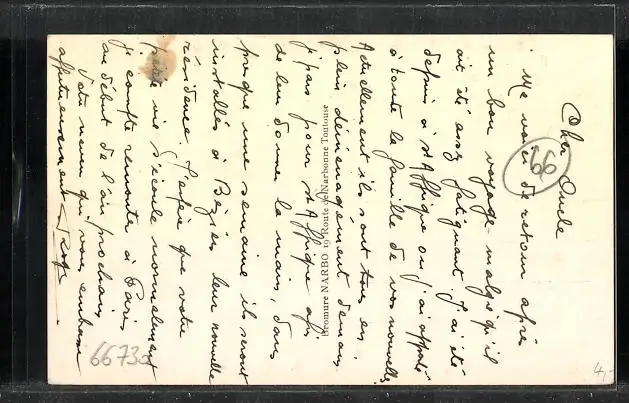 Cher Oncle
Me voici de retour après
un bon voyage malgré qu'il
ait été assez fatiguant. J'ai été
depuis à St Affrique où j'ai apporté
à toute la famille de vos nouvelles
Actuellement ils sont tous en
plein déménagement demain
je pars pour St Affrique afin
de leur donner la main, dans
presque une semaine ils seront
installés à Béziers leur nouvelle
résidence. J'espère que votre
petite vie s'écoule normalement
je compte remonter à Paris
au début de l'an prochain,
Votre neveu qui vous embrasse
affectueusement
Bromure NARBO 19 Route de Narbonne Toulouse
66
66730
4,-